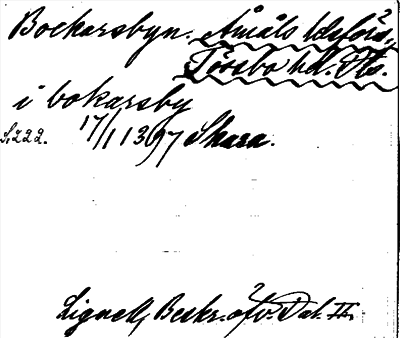 Bockarsbyn. Åmåls ldsförs.,
Tössbo hd. Dls.
i bokarsby
S. 222. 17/1 1397 Skara.
Lignell, Beskr. öfv. Dal. II.